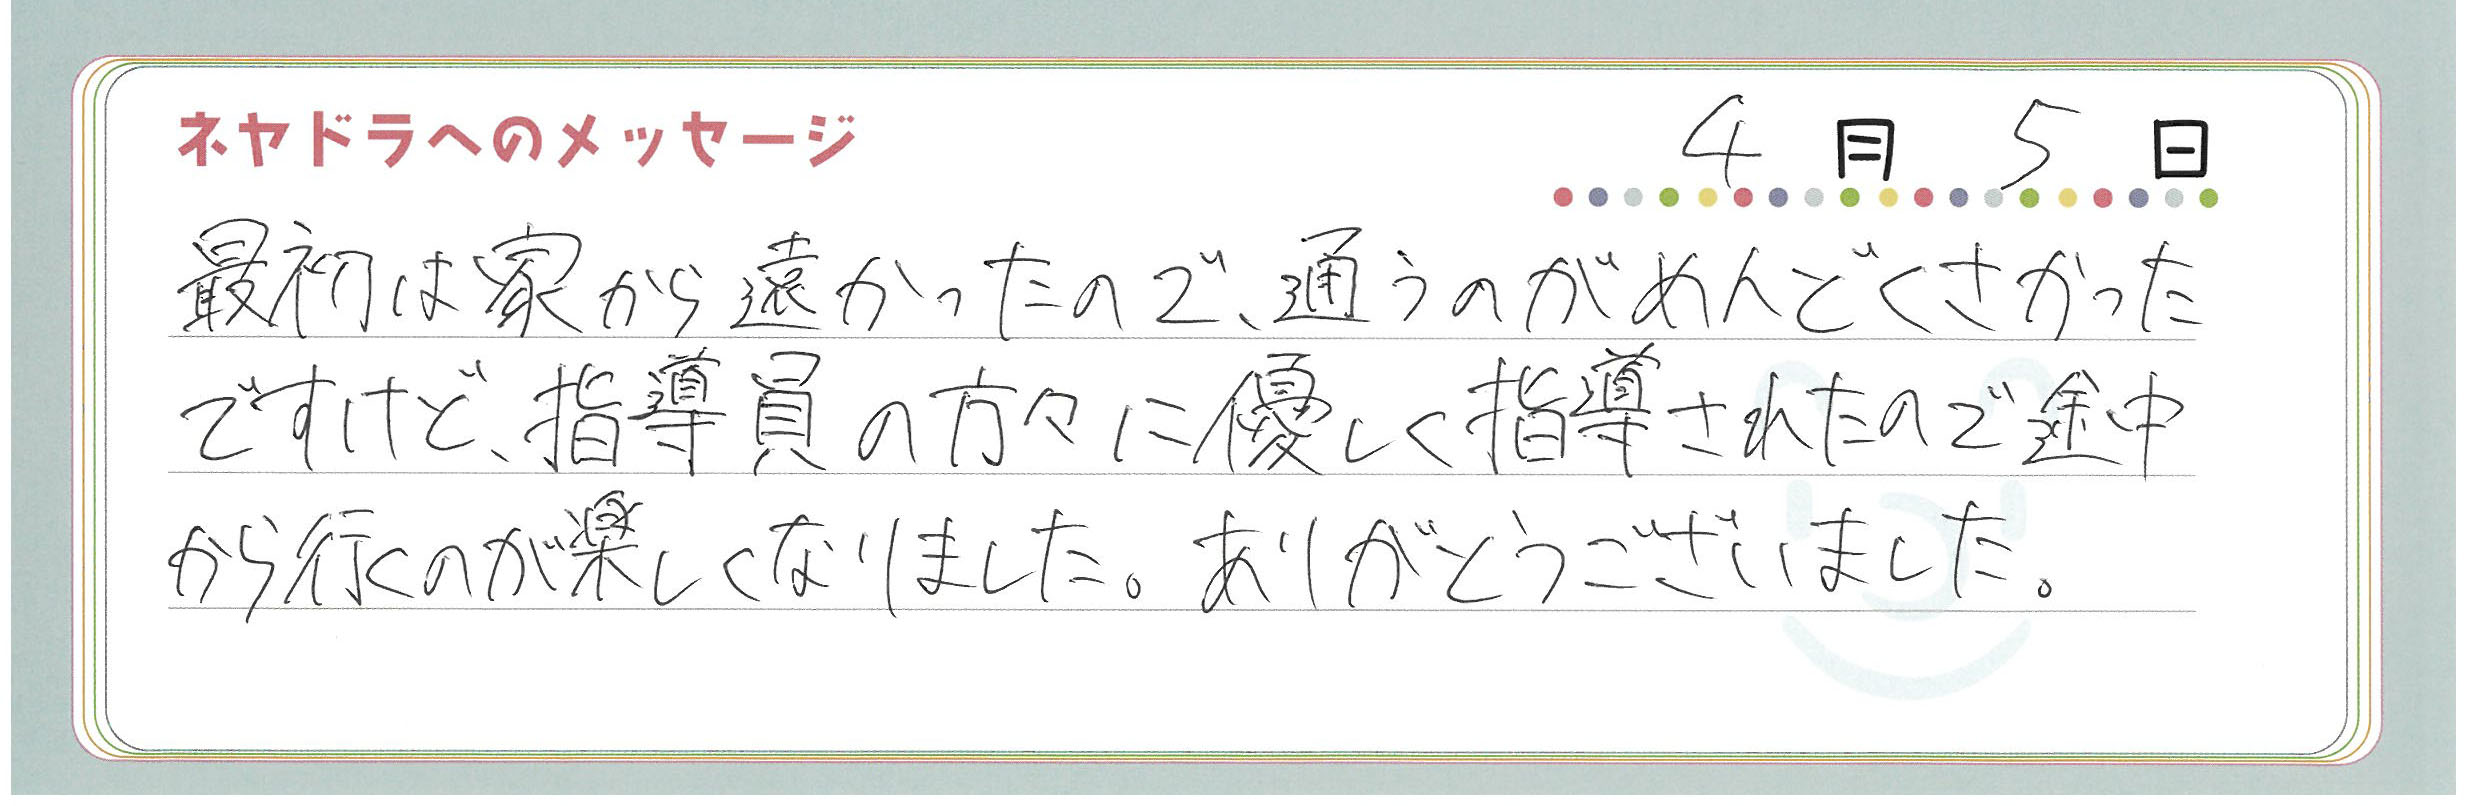 ネヤドラへのメッセージ
4月5日
最初は家から遠かったので、通うのがめんどくさかった
ですけど、指導員の方々に優しく指導されたので途中
から行くのが楽しくなりました。ありがとうございました。